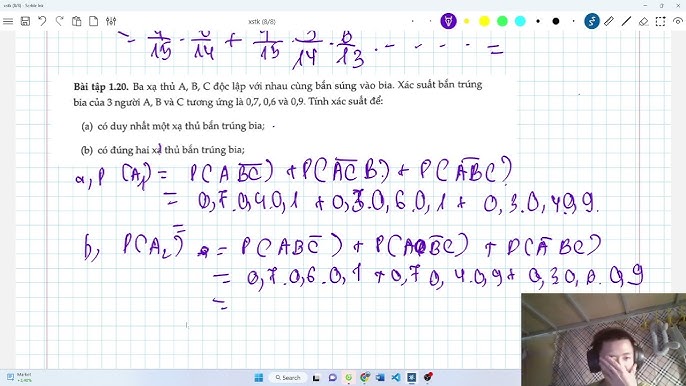 xstk (8/8) - Scribble Ink
xstk (8/8)
= 4/15 . 6/14 + 4/15 . 5/14 . 6/13 . - - - - =
Bài tập 1.20. Ba xạ thủ A, B, C độc lập với nhau cùng bắn súng vào bia. Xác suất bắn trúng
bia của 3 người A, B và C tương ứng là 0,7, 0,6 và 0,9. Tính xác suất để:
(a) có duy nhất một xạ thủ bắn trúng bia;
(b) có đúng hai xạ thủ bắn trúng bia;
a, P (A₁) = P(A B̅C̅) + P(A̅C̅ B) + P(A̅B̅C)
= 0,7.0,4.0,1 + 0,3.0,6.0,1 + 0,3.0,4.0,9.
=
b, P(A₂) = P(ABC̅) + P(AB̅C) + P(A̅BC)
= 0,7.0,6.0,1 + 0,7 0,4.0,9 + 0,3 0,6.0,9
=
Market
+1,40%
Search